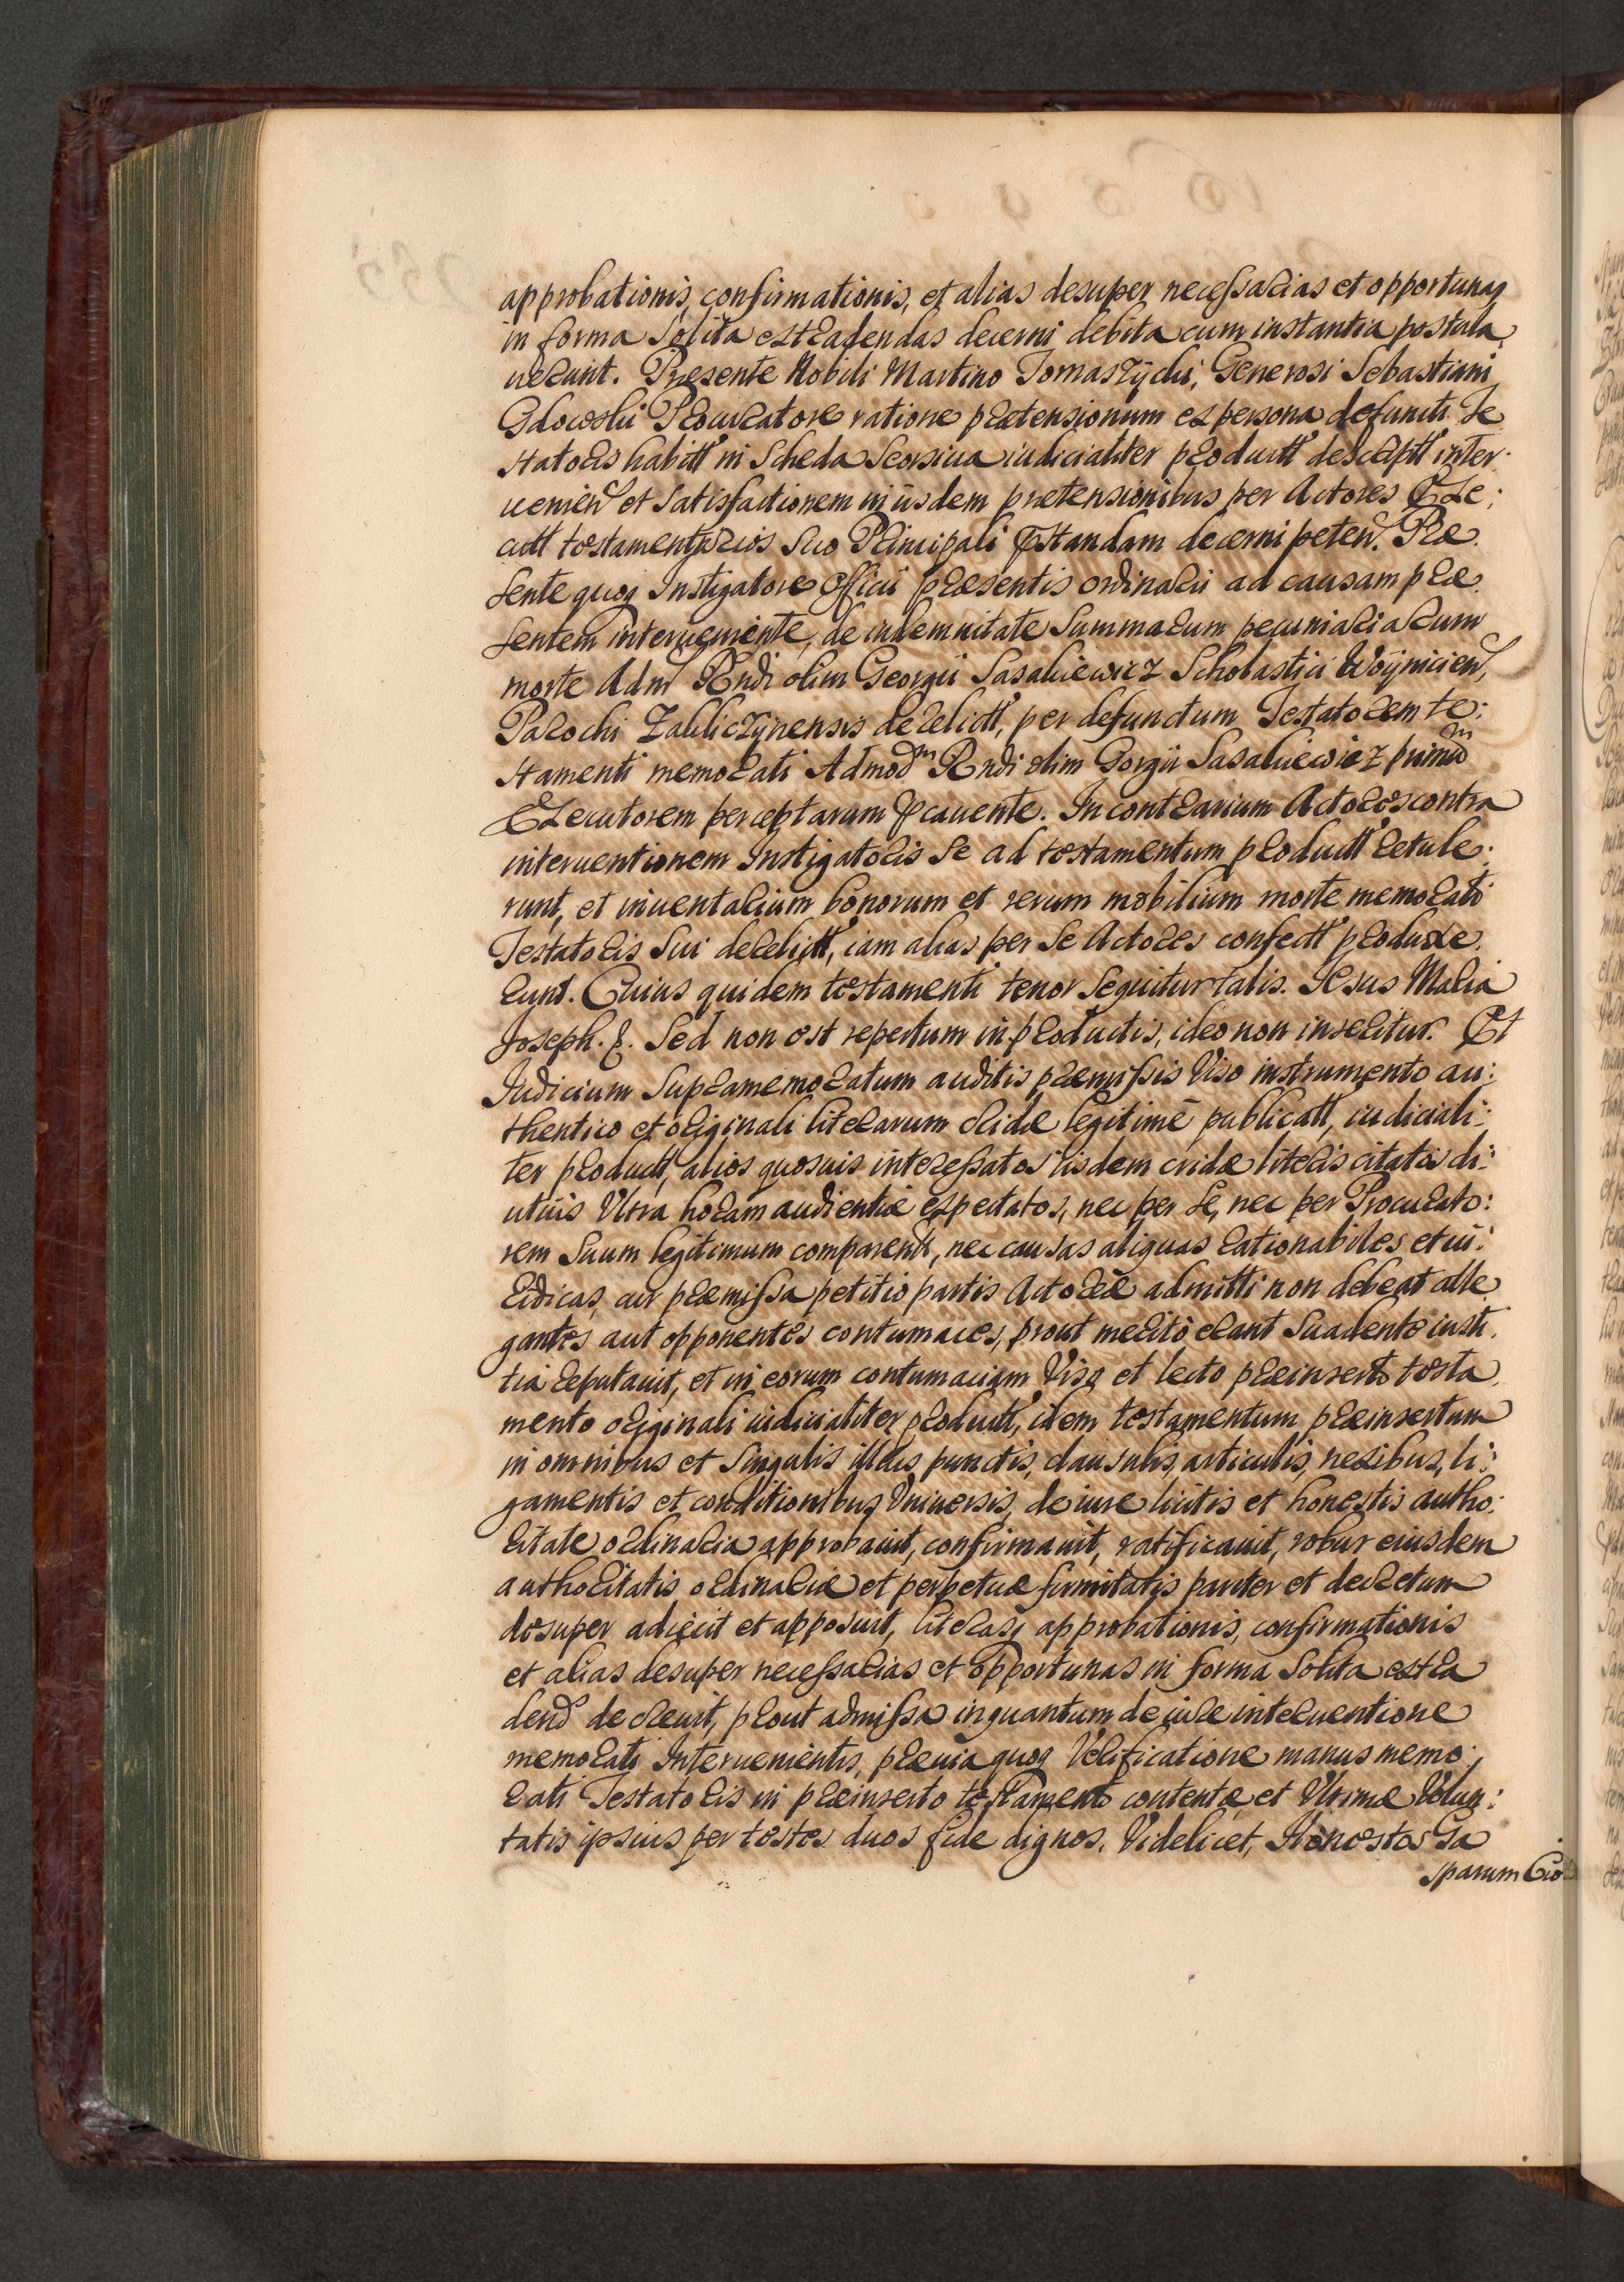 approbationis, confirmationis, et alias desuper necessarias et opportunas
in forma solita extradendas decerni debita cum instantia postula
uerunt. Presente Nobili Martino Tomaszÿcki, Generosi Sebastiani
Gdowski Procuratore ratione prætensionum ex persona defuncti Te
statoris habitt in Scheda Seorsiua iudicialiter productt descriptt inter:
uenien et Satisfactionem in iisdem pretensionibus per Actores Exe:
cutt testamentarios suo Principali pstandam decerni peten. Præ
sente quoq Instigatore Officii præsentis ordinarii ad causam præ
sentem interueniente, de indemnitate summarum pecuniariarum
morte Adm Rndi olim Georgii Sasakiewicz Scholastici Woÿnicien,
Parochi Zakliczÿnensis derelictt, per defunctum Testatorem te:
stamenti memorati Admodm Rndi olim Gorgii Sasakiewicz primum
Executorem perceptarum &c cauente. In contrarium Actores contra
interuentionem Instigatoris se ad testamentum productt retule:
runt, et inuentarium bonorum et rerum mobilium morte memorati
Testatoris sui derelictt, iam alias per se Actores confectt produxe
runt. Cuius quidem testamenti tenor sequitur talis. Jesus Maria
Joseph. &. Sed non est repertum in productis, ideo non inseritur. Et
Judicium supramemoratum auditis præmissis Viso instrumento au:
thentico et originali literarum cridæ legitimè publicatt, iudiciali:
ter productt, alios quosuis interessatos iisdem cridæ literis citatos di:
utius Vltra horam audientiæ expectatos, nec per se, nec per Procurato:
rem suum legitimum comparentt, nec causas aliquas rationabiles et iu:
ridicas, cur præmissa petitio partis Actoreæ admitti non debeat alle
gantes aut opponentes contumaces, prout meritò erant suadente iusti
tia reputauit, et in eorum contumaciam Viso et lecto præinserto testa
mento originali iudicialiter productt, idem testamentum præinsertum
in omnibus et singulis illius punctis, clausulis, articulis, nexibus, li:
gamentis et conditionibus Vniuersis, de iure licitis et honestis autho:
ritate ordinaria approbauit, confirmauit, ratificauit, robur eiusdem
authoritatis ordinariæ et perpetuæ firmitatis pariter et decretum
desuper adiecit et apposuit, literasq approbationis, confirmationis
et alias desuper necessarias et opportunas in forma solita extra
dend decreuit, prout admissa inquantum de iure interuentione
memorati Interuenientis, præuia quoq Verificatione manus memo:
rati Testatoris in præinserto testamento contentæ et Vltimæ Volun:
tatis ipsius per testes duos fide dignos, Videlicet, Honestos Ga
sparum Cio